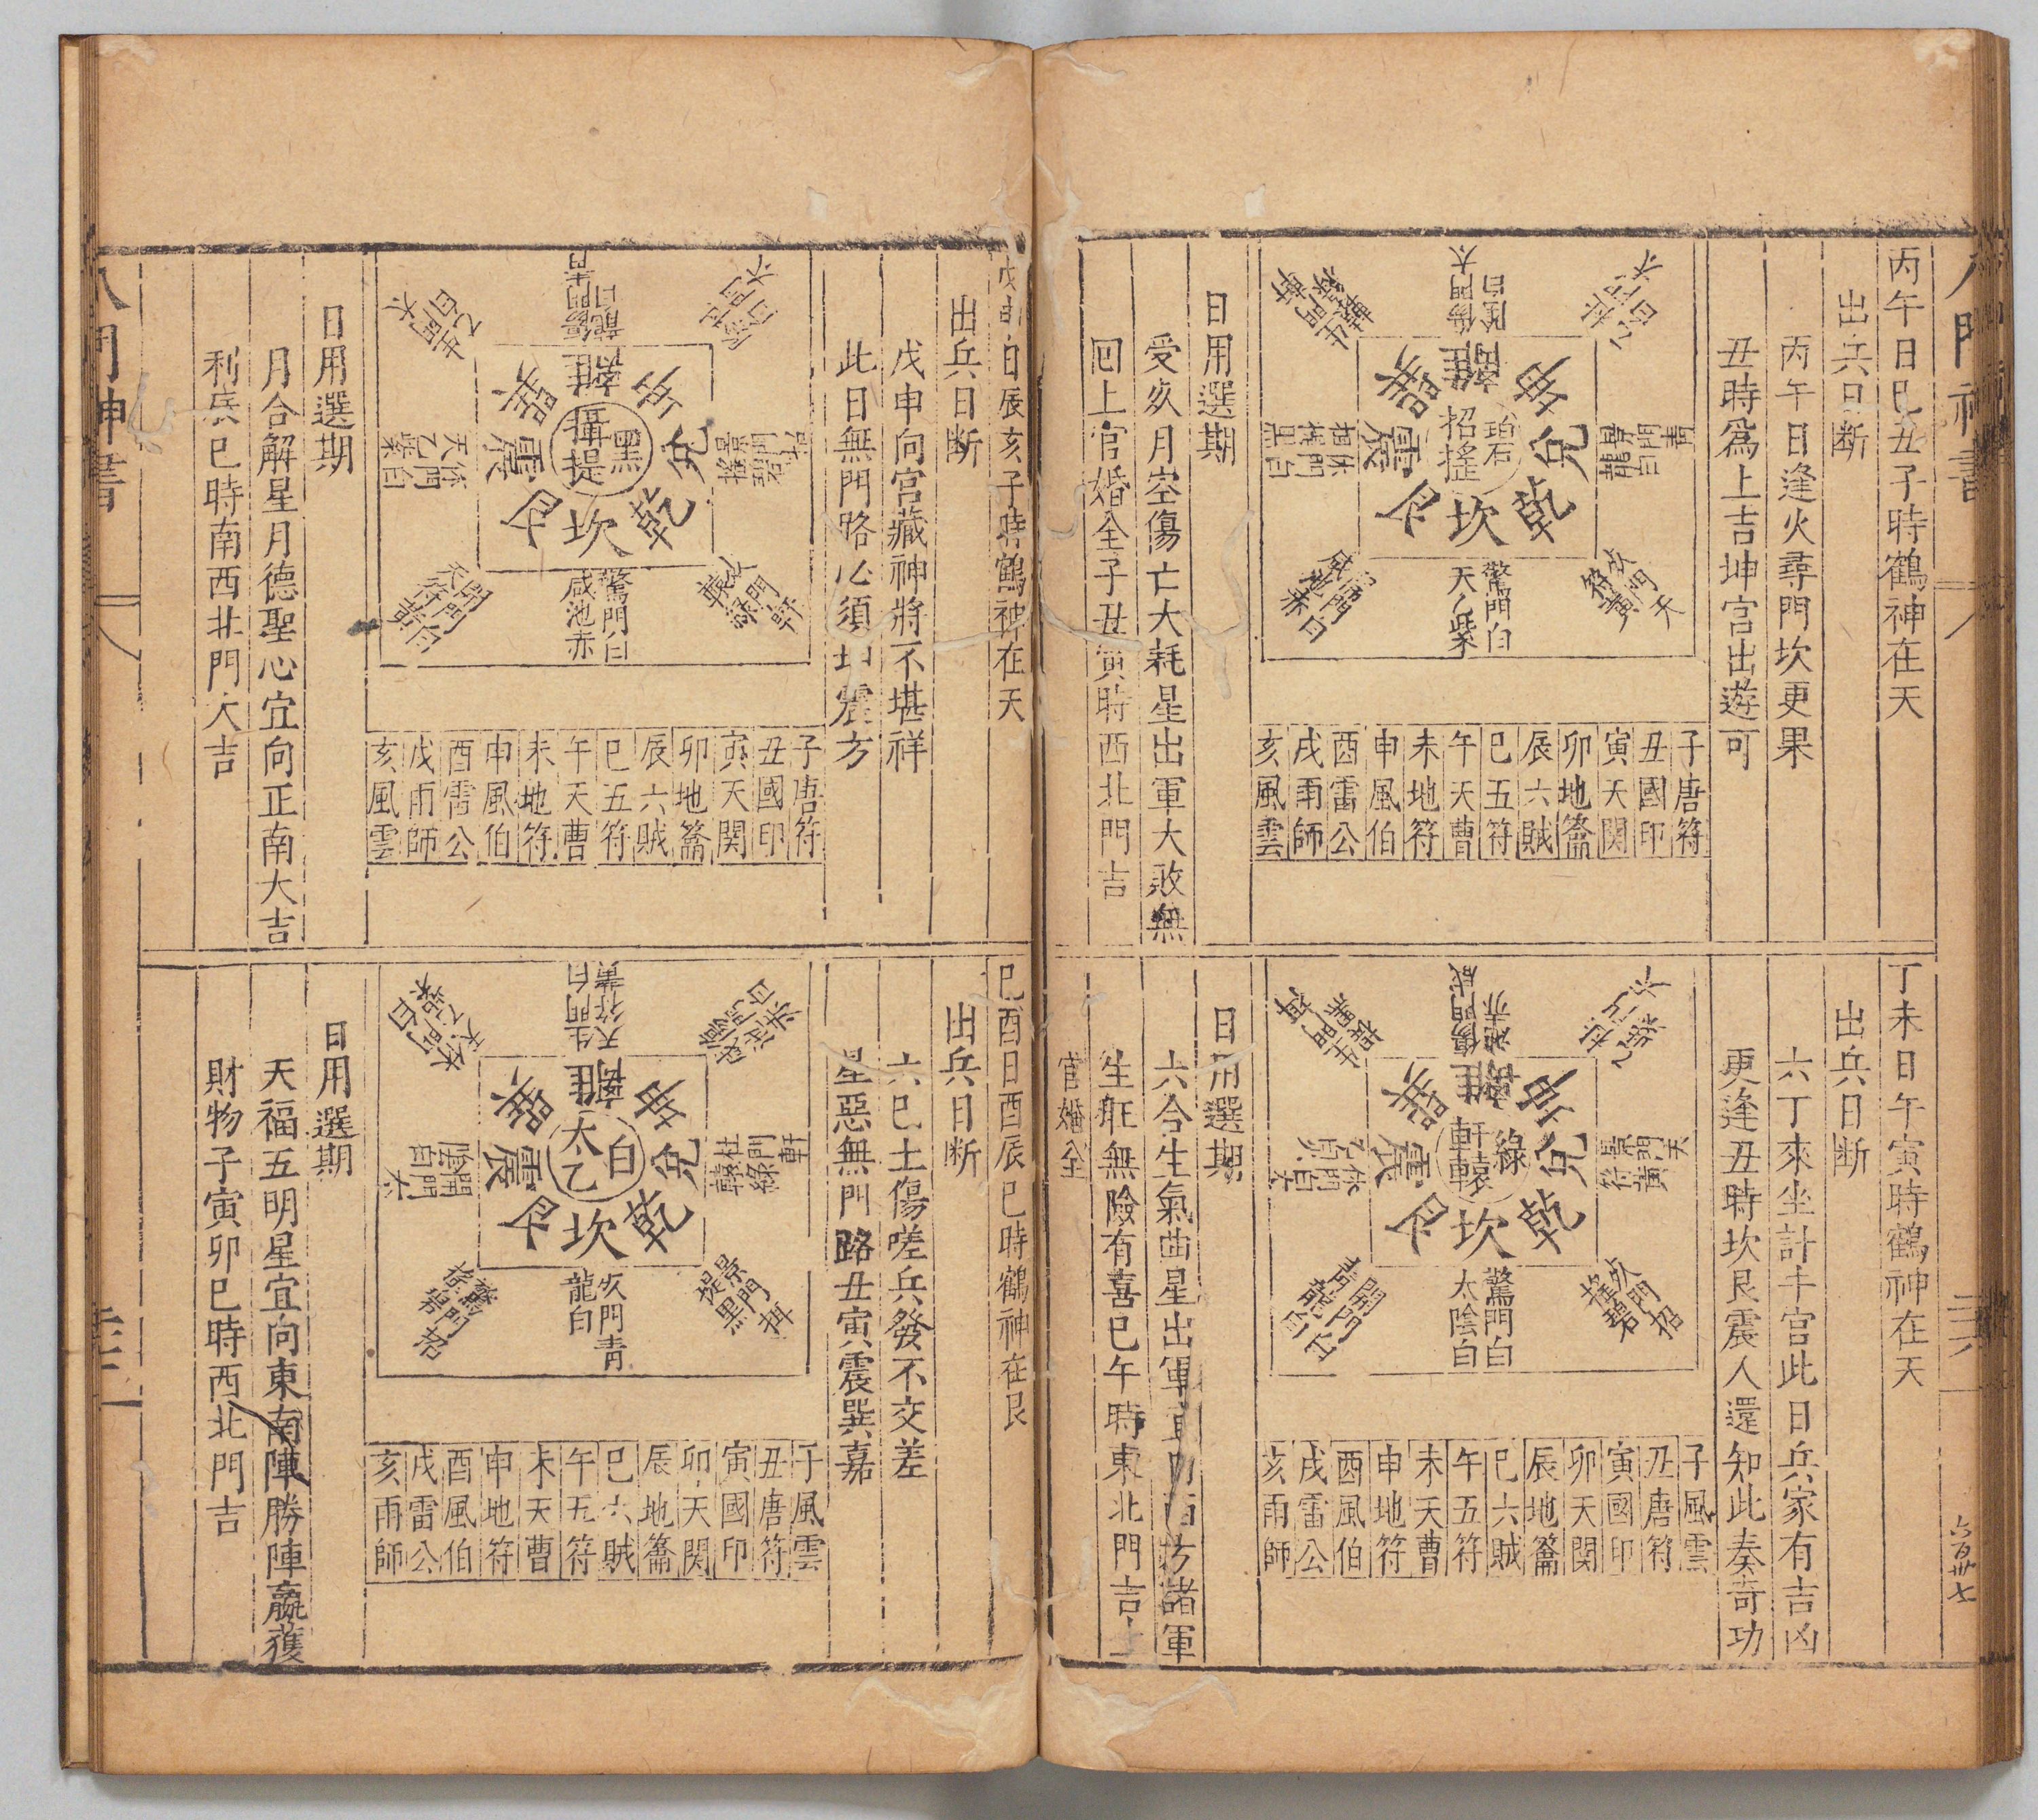 八門神書
丙午日巳丑子時鶴神在天
出兵日断
丙午日逢火尋門坎更果
丑時爲上吉坤宮出遊可
離
坤
兌
乾
坎
艮
震
巽
碧
招摇
驚門白
天乙紫
子唐符
丑國印
寅天関
卯地籥
辰六賊
巳五符
午天曹
未地符
申風伯
酉雷公
戌雨師
亥風雲
日用選期
受灾月空傷亡大耗星出軍大敗無
回上官婚全子丑寅時西北門吉
丁未日午寅時鶴神在天
出兵日断
六丁來坐計千宮此日兵家有吉凶
更逢丑時坎艮震人還知此奏奇功
離
坤
兌
乾
坎
艮
震
巽
綠
軒轅
驚門白
太陰白
子風雲
丑唐符
寅國印
卯天関
辰地籥
巳六賊
午五符
未天曹
申地符
酉風伯
戌雷公
亥雨師
日用選期
六合生氣曲星出軍 西方諸軍
生旺無險有喜巳午時東北門吉上
官婚全
六百卅七
戊申日辰亥子時鶴神在天
出兵日断
戊申向宮藏神將不堪祥
此日無門路心須 震方
離
坤
兌
乾
坎
艮
震
巽
黑
攝提
驚門白
咸池赤
子唐符
丑國印
寅天関
卯地籥
辰六賊
巳五符
午天曹
未地符
申風伯
酉雷公
戌雨師
亥風雲
日用選期
月合解星月德聖心宜向正南大吉
利辰巳時南西北門大吉
巳酉日酉辰巳時鶴神在艮
出兵日断
六巳土傷嗟兵發不交差
星惡無門路丑寅震巽嘉
離
坤
兌
乾
坎
艮
震
巽
白
太乙
灾門青
龍白
子風雲
丑唐符
寅國印
卯天関
辰地籥
巳六賊
午五符
未天曹
申地符
酉風伯
戌雷公
亥雨師
日用選期
天福五明星宜向東南陣勝陣嬴獲
財物子寅卯巳時西北門吉
八門神書